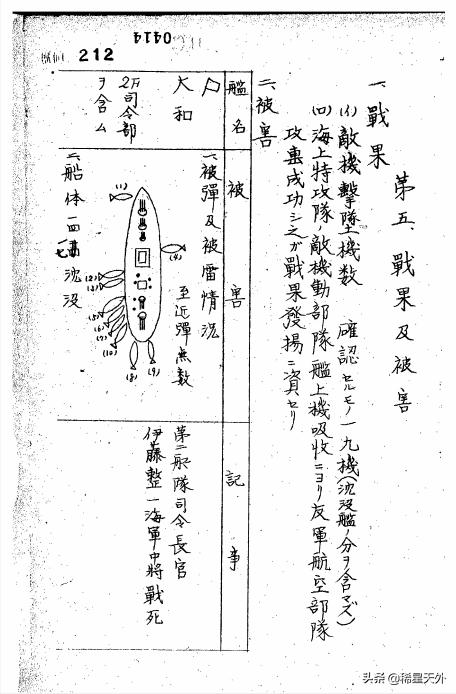 0414
212
第五、戰果及被害
一、戰果
(イ)敵機擊墜機数 確認セルモノ一九機(沈没艦ノ分ヲ含マズ)
(ロ)海上特攻隊ノ敵機動部隊艦上機吸收ニヨリ友軍航空部隊
成功シ之ガ戰果發揚ニ資セリ
二、被害
艦名
被害
記事
大和
2F司令部
ヲ含ム
一、被彈及被雷情況
至近彈無数
(1)
(2)
(3)
(4)
(5)
(6)
(7)
(10)
(8)
(9)
二、船体沈没
第二艦隊司令長官
伊藤整一海軍中將戰死
头条 @稀星天外